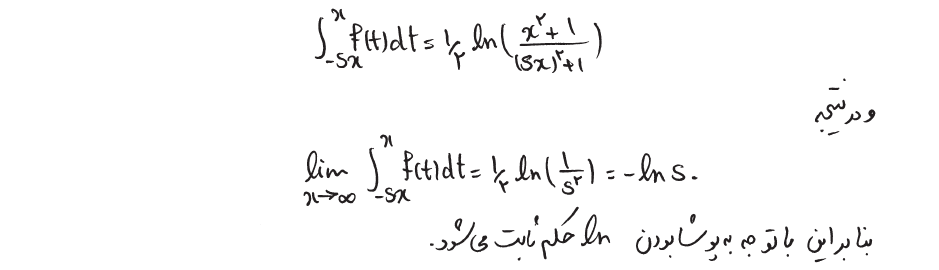 ∫_{-sx}^{x} f(t)dt = ۱/۲ ln( (x^۲+1) / ((sx)^۲+1) )
و در نتیجه
lim_{x→∞} ∫_{-sx}^{x} f(t)dt = ۱/۲ ln( 1 / s^۲ ) = -ln s.
بنابراین با توجه به پوشا بودن ln حکم ثابت می‌شود.